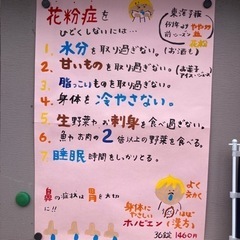 花粉症を
ひどくしないには…
東洋予報
1. 水分を取り過ぎない。(お酒も)
2. 甘いものを取り過ぎない。(お菓子、アイス・ジュース)
3. 脂っこいものを取り過ぎない。
4. 身体を冷やさない。
5. 生野菜やお刺身を食べ過ぎない。
6. 魚やお肉の2倍以上の野菜を食べる。
7. 睡眠時間をしっかりとる。
鼻の症状は胃を大切に!!
よく効く
身体にやさしい
ホノビエン(漢方)
36錠 1460円